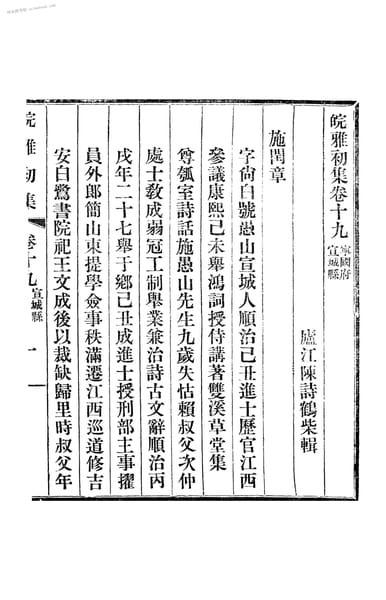 皖雅初集卷十九 寧國府 宣城縣
廬江陳詩鶴柴輯
施閏章
字尙白號愚山宣城人順治己丑進士歷官江西
參議康熙己未舉鴻詞授侍講著雙溪草堂集
尊瓠室詩話施愚山先生九歲失怙賴叔父次仲
處士敎成弱冠工制舉業兼治詩古文辭順治丙
戌年二十七舉于鄕己丑成進士授刑部主事擢
員外郞簡山東提學僉事秩滿遷江西巡道修吉
安白鷺書院祀王文成後以裁缺歸里時叔父年
皖雅初集 卷十九 宣城縣 一